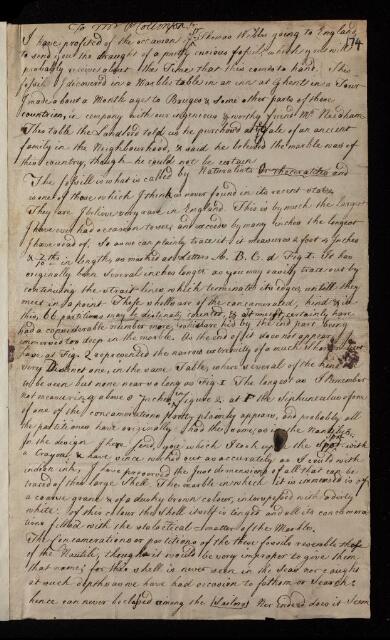 To Mr P Collinson
I have profited of the occasion of Thomas Wibles going to England 174
to send you the draught of a most curious fossil, which you will
probably receive about the Time that this comes to hand. This
fossil I discovered in a Marble table in an inn at Ghent in a Tour
I made about a Month ago to Bruges & some other parts of these
countries, in company with our ingenious & worthy friend Mr Needham
This table the Landlord told us he purchased at the Sale of an ancient
family in the Neighbourhood, & said he believed the marble was of
this country, though he could not be certain
The fossil is what is called by Naturalists Orthoceratites and
is one of those which I think is never found in its recent state.
They are I believe very rare in England. This is by much the largest
I have ever had occasion to see, and exceeds by many inches the longest
I have read of. So as we can plainly trace it, it measures 2 foot 9 Inches
& 7/10ths in length, as marked at letters A. B. C. d Fig I. It has
originally been several inches longer as you may easily trace out by
continuing the strait lines which terminate its edges, untill they
meet in a point These shells are of the concamerated kind & in
this, 66 partitions may be distinctly counted, & it must certainly have
had a considerable number more, by the end part being
immersed too deep in the marble. As the end of it does not appear, I
have at Fig. 2 represented the narrow extremity of a much smaller but
very Distinct one, in the same Table, where several of the kind
to be seen but none near so long as Fig I The longest as I Remember
not measuring above 8 inches in figure 2. at F the Siphunculus of one
of one of the concamerations plainly appears, and probably all
the partitions have originally had the same, as in the Nautili.
In the design I here send you which I took upon the Spot with
a Crayon, & have since washed out as accurately as I could with
indian ink, I have preserved the just dimensions of all that can be
traced of this large Shell The marble in which it is immersed is of
a coarse grant & of a dusky brown colour, interspersed with a dirty
white. of this colour the Shell itself is tinged and all its concamera
tions filled with the stalactical matter of the Marble.
The concamerations or partitions of the these fossils resemble those
of the Nautili, though it would be very improper to give them
that name; for this shell is never seen in the Seas nor caught
at such depths as we have had occasion to fathom or Search &
hence can never be classed among the (Sailors) Nor Indeed does it Seem